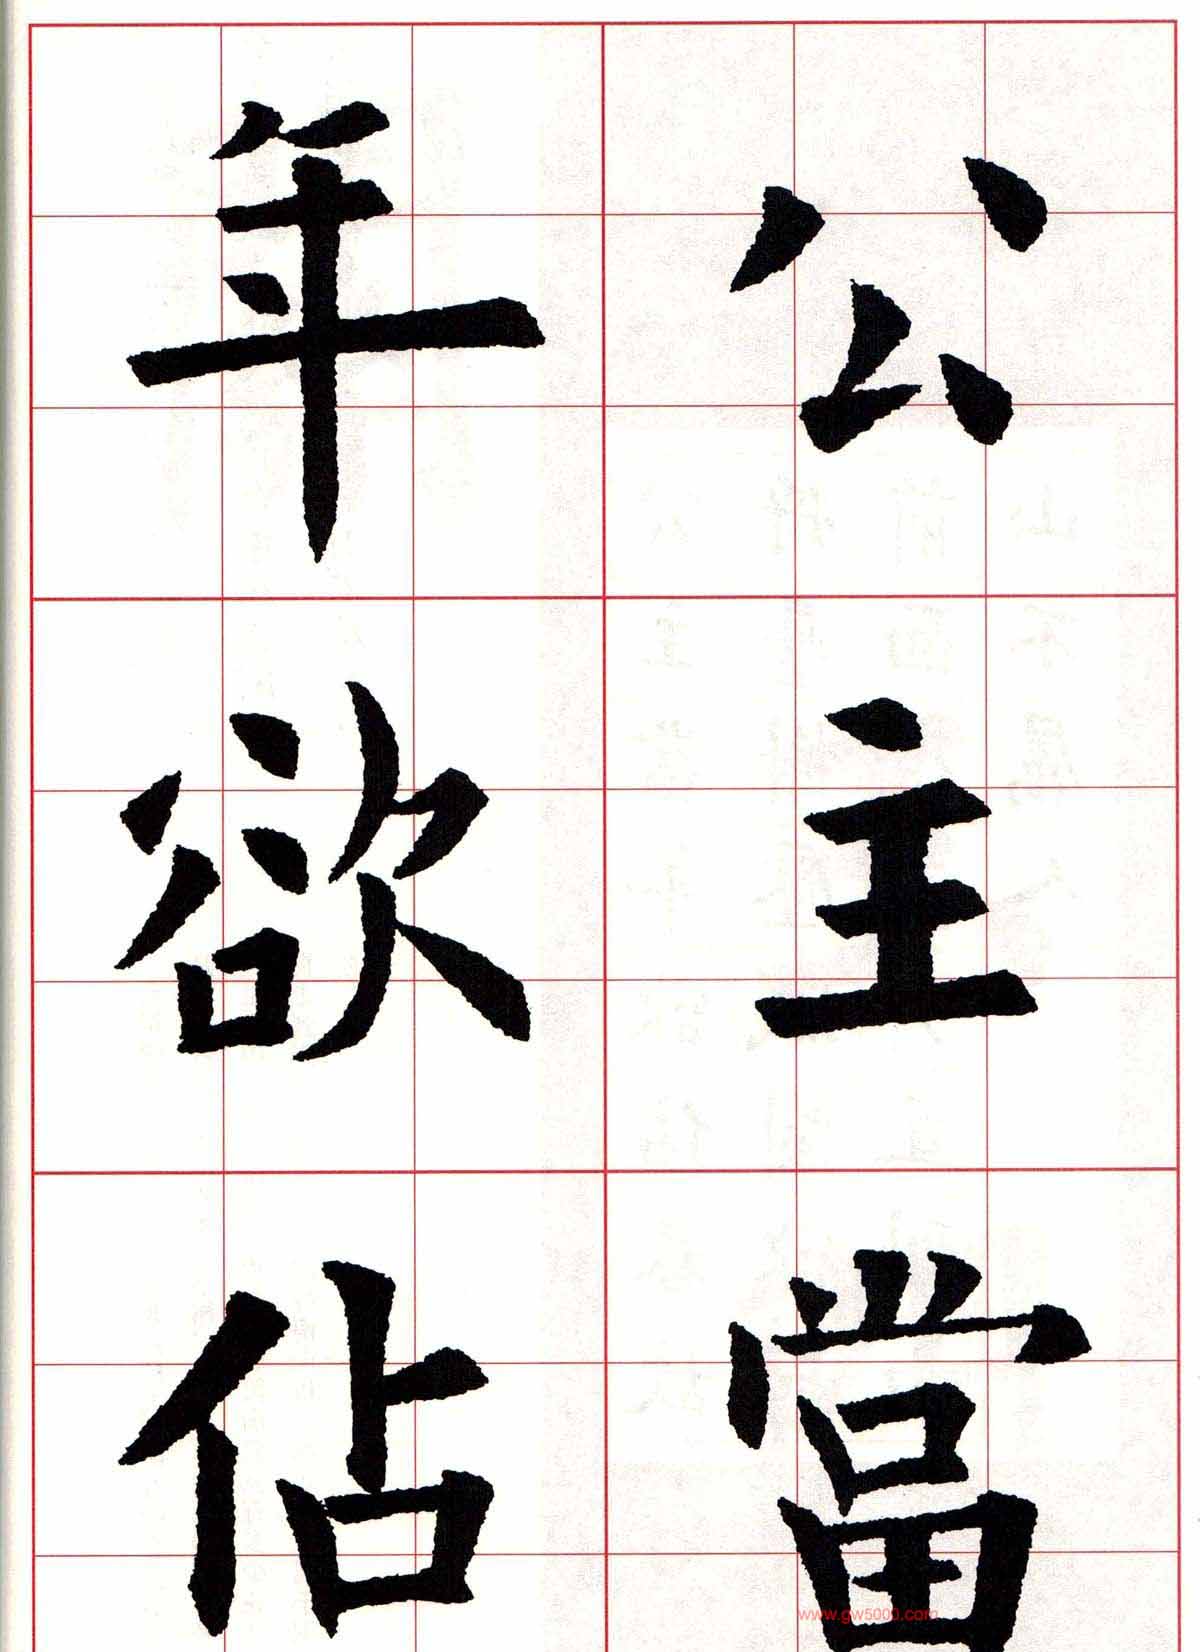 公主當
年欲佔
www.gw5000.com